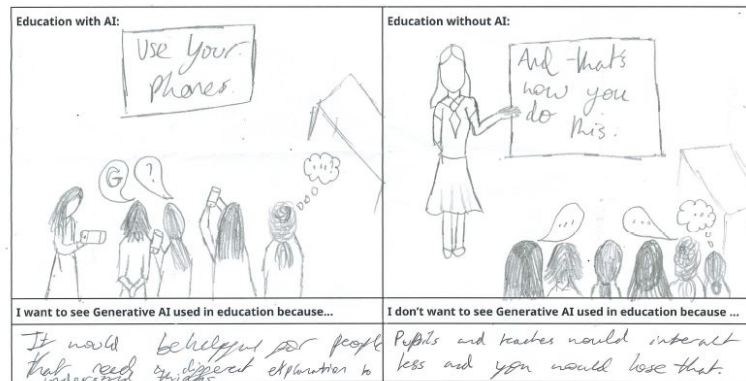 Education with AI:
Use Your
Phones.
G
?
...?
I want to see Generative AI used in education because...
It would be helpful for people
that need a different explanation to
understand things
Education without AI:
And that's
how you
do this.
...
...
...
I don't want to see Generative AI used in education because ...
Pupils and teachers would interact
less and you would lose that.